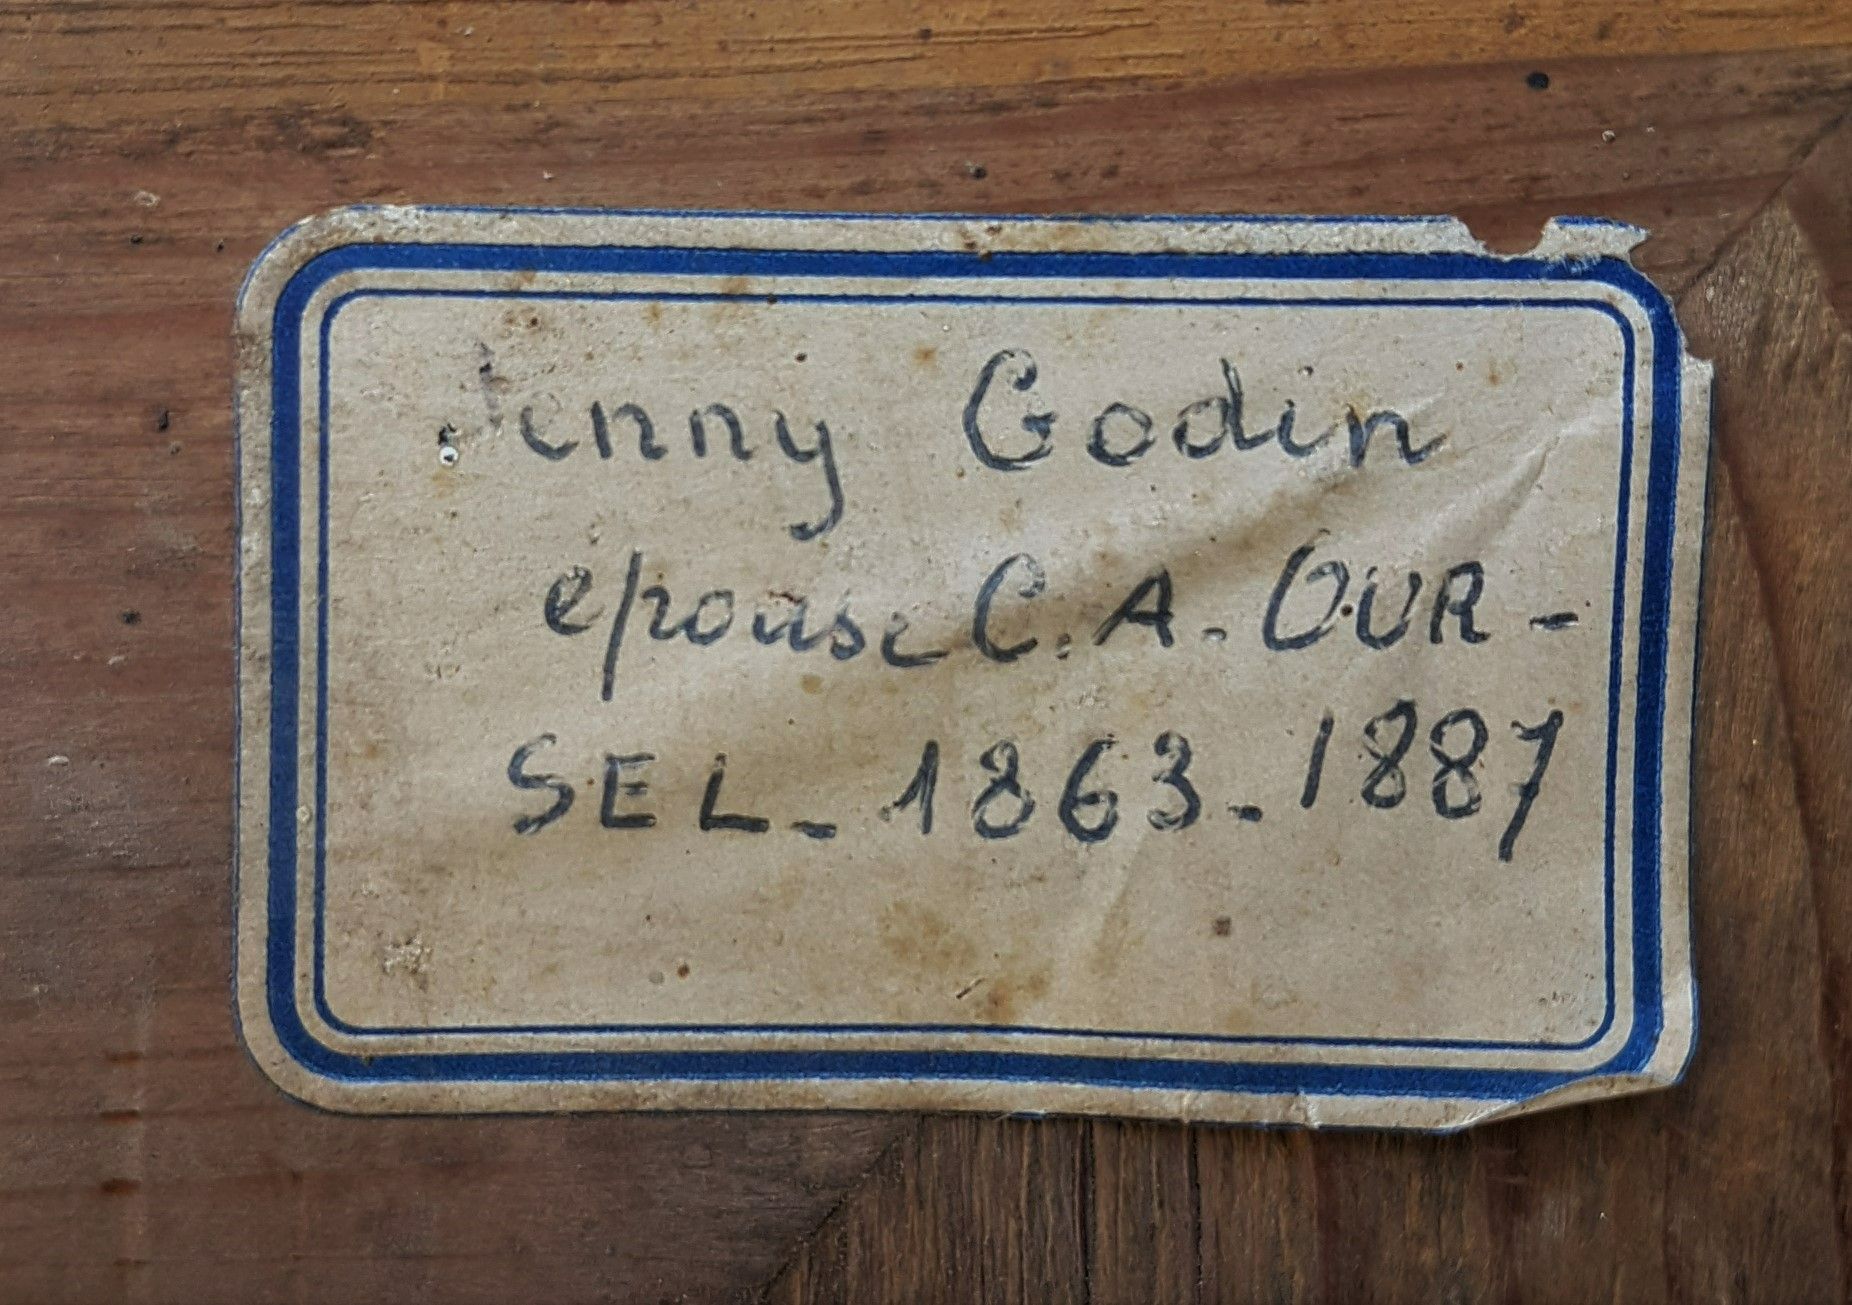 Jenny Godin
épouse C. A. OUR-
SEL_ 1863_ 1887